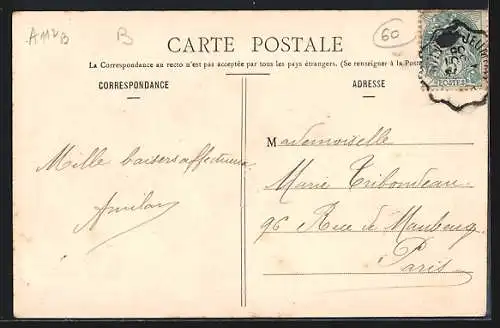 A112B
B
60
CARTE POSTALE
La Correspondance au recto n'est pas acceptée par tous les pays étrangers. (Se renseigner à la Poste
CORRESPONDANCE
ADRESSE
POSTES
Mademoiselle
Mille baisers affectueux
Marie Tribondeau
96 Rue de Maubeuge
Paris